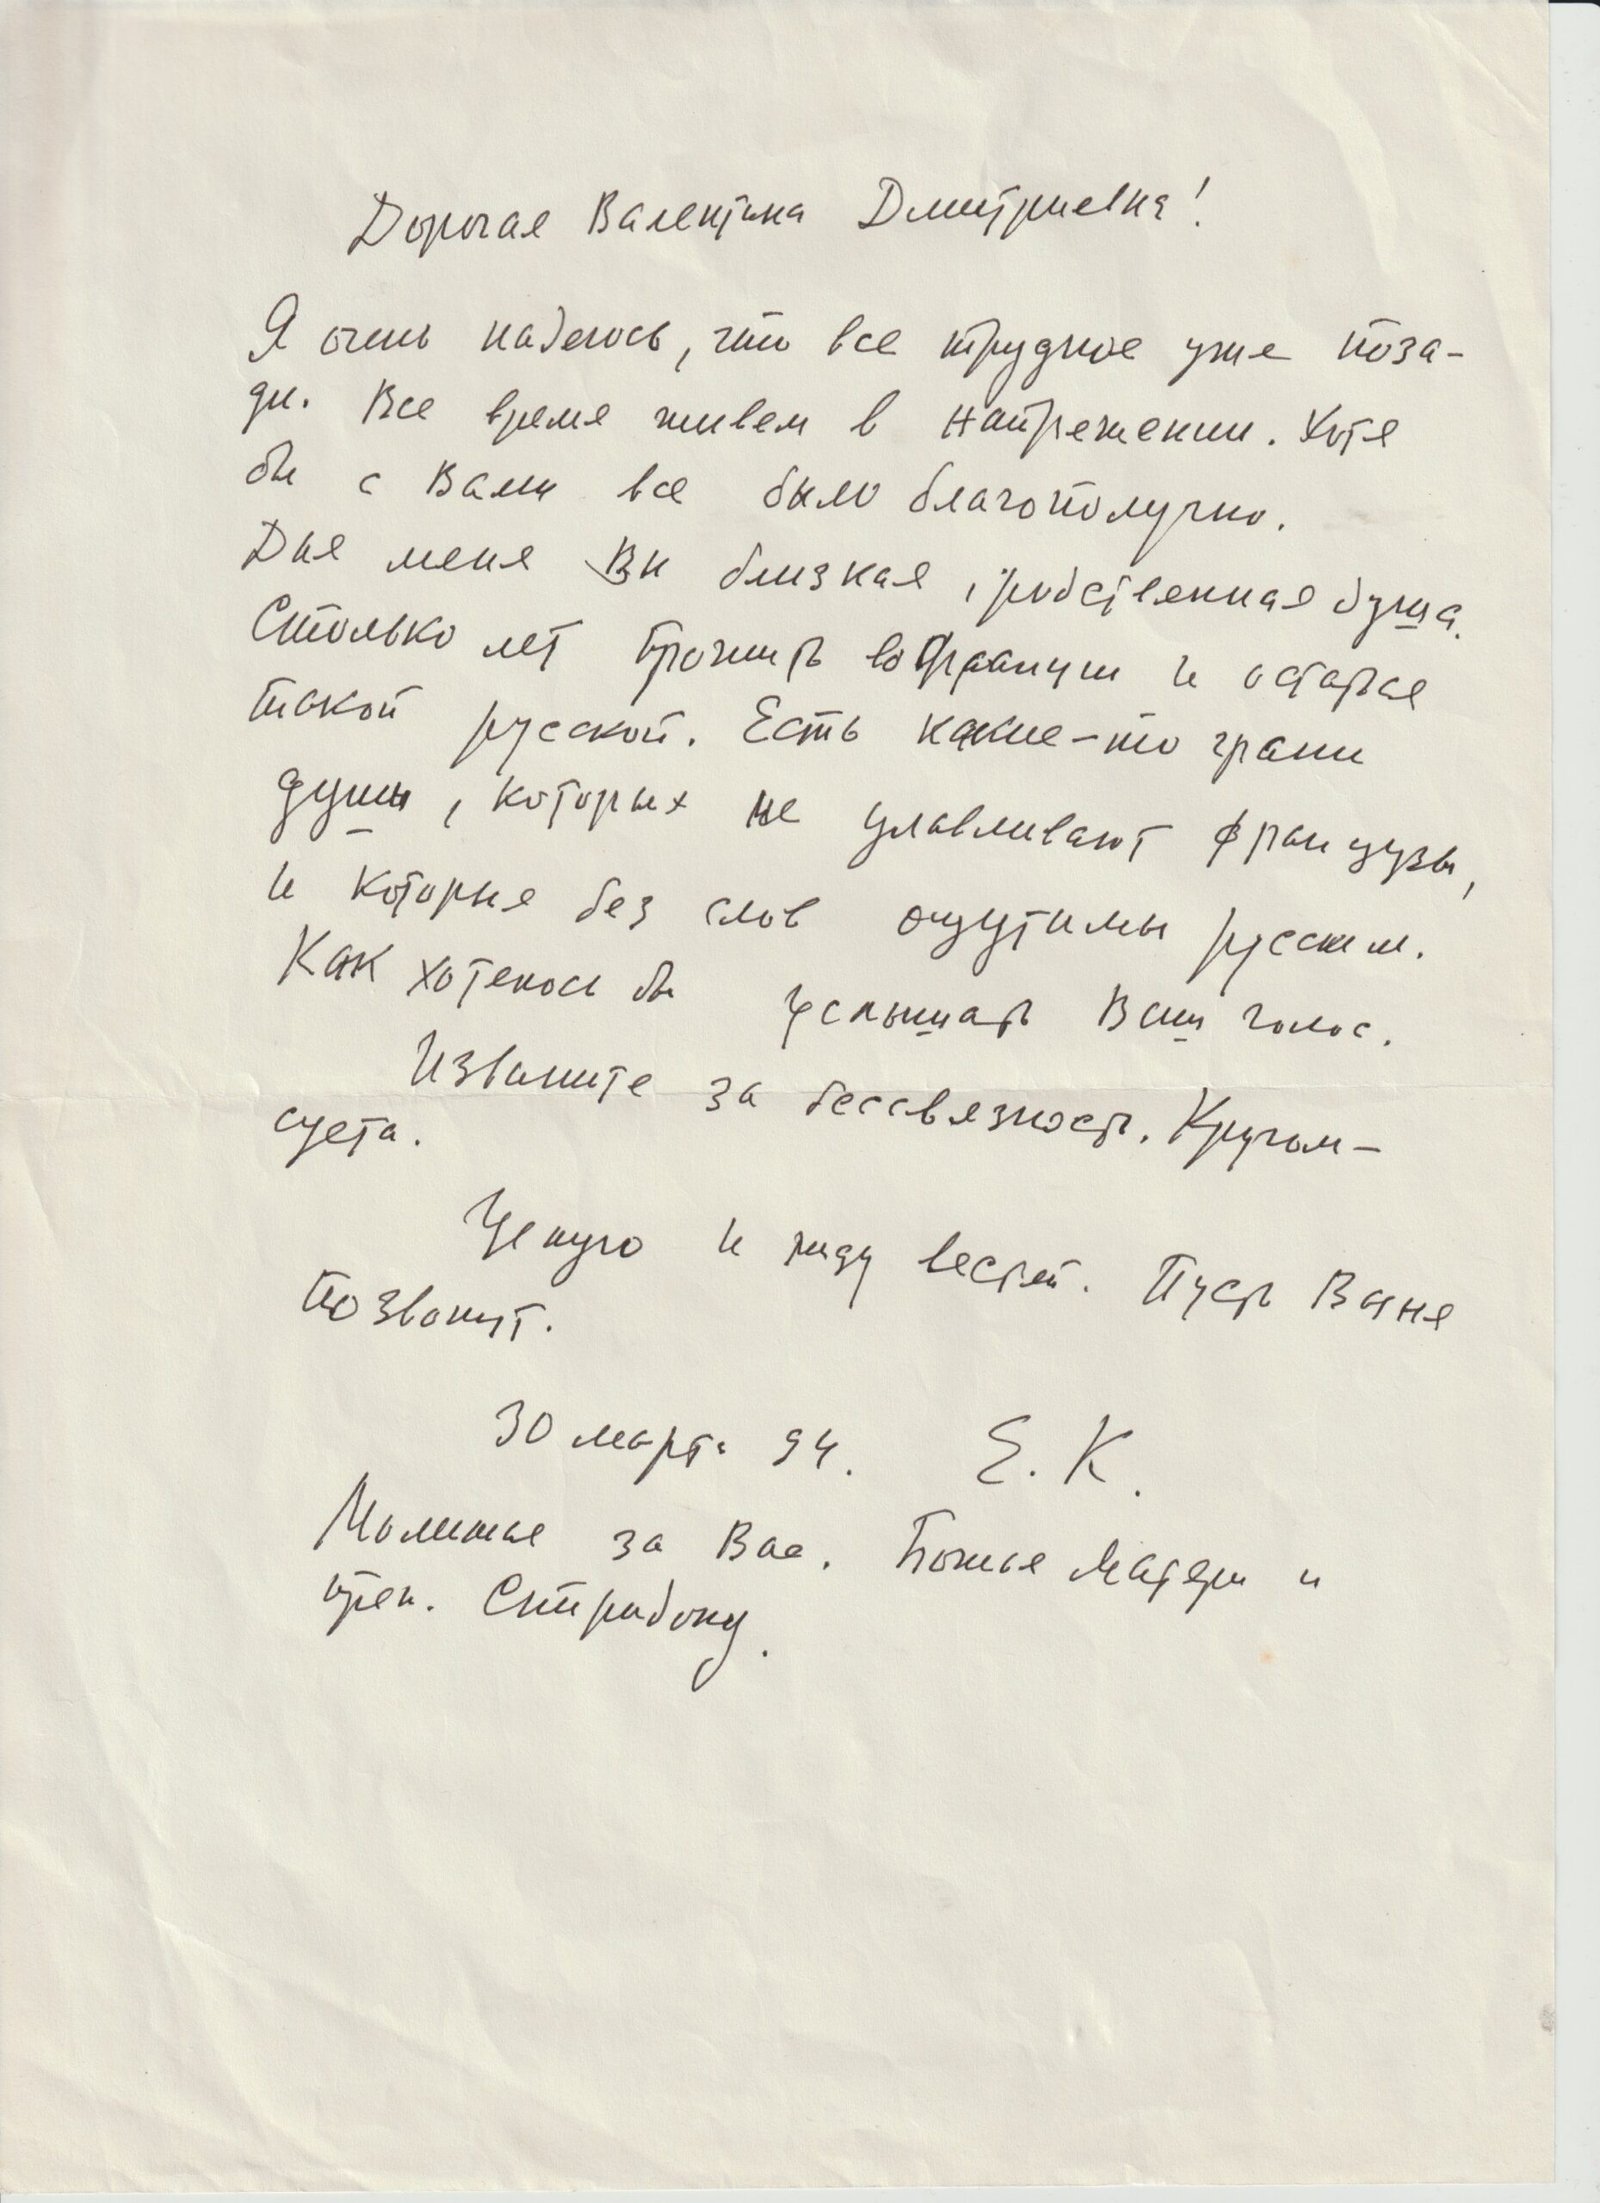 Дорогая Валентина Дмитриевна!
Я очень надеюсь, что все трудное уже поза-
ди. Все время живем в напряжении. Хотя
бы с Вами все было благополучно.
Для меня Вы близкая, родственная душа.
Столько лет прожить во Франции и остаться
такой русской. Есть какие-то грани
души, которых не улавливают французы,
и которые без слов ощутимы русским.
Как хотелось бы услышать Ваш голос.
Извините за бессвязность. Кругом -
суета.
Целую и жду вестей. Пусть Ваня
позвонит.
30 марта 94. Е. К.
Молимся за Вас. Божья Матери и
преп. Спиридону.